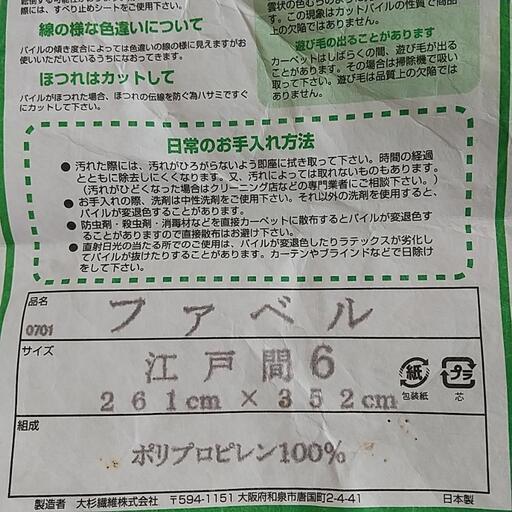 際には、すべり止めシートをご使用下さい。
線の様な色違いについて
パイルの傾き度合によっては色違いの線の様に見えますがお
使いいただいているうちになおってきます。
ほつれはカットして
パイルがほつれた場合、ほつれの伝線を防ぐ為ハサミですぐ
にカットして下さい。
す。この現象はカットパイルの性質で商品
上の欠陥ではありません。
遊び毛の出ることがあります
カーペットはしばらくの間、遊び毛が出る
ことがあります。その場合は掃除機で吸い
取って下さい。遊び毛は品質上の欠陥では
ありません。
日常のお手入れ方法
●汚れた際には、汚れがひろがらないよう即座に拭き取って下さい。時間の経過
とともに除去しにくくなります。又、汚れによっては取れないものもあります。
(汚れがひどくなった場合はクリーニング店などの専門業者にご相談下さい。)
●お手入れの際、洗剤は中性洗剤をご使用下さい。それ以外の洗剤を使用すると、
パイルが変退色することがあります。
●防虫剤・殺虫剤・消毒材などを直接カーペットに散布するとパイルが変退色す
ることがありますので直接散布はお避け下さい。
●直射日光の当たる所でのご使用は、パイルが変退色したりラテックスが劣化し
てパイルが抜けたりすることがあります。カーテンやブラインドなどで日除け
をして下さい。
品名
0701
ファベル
サイズ
江戸間6
261cm×352cm
紙
包装紙
プラ
芯
組成
ポリプロピレン100%
製造者 大杉繊維株式会社 〒594-1151 大阪府和泉市唐国町2-4-41 日本製